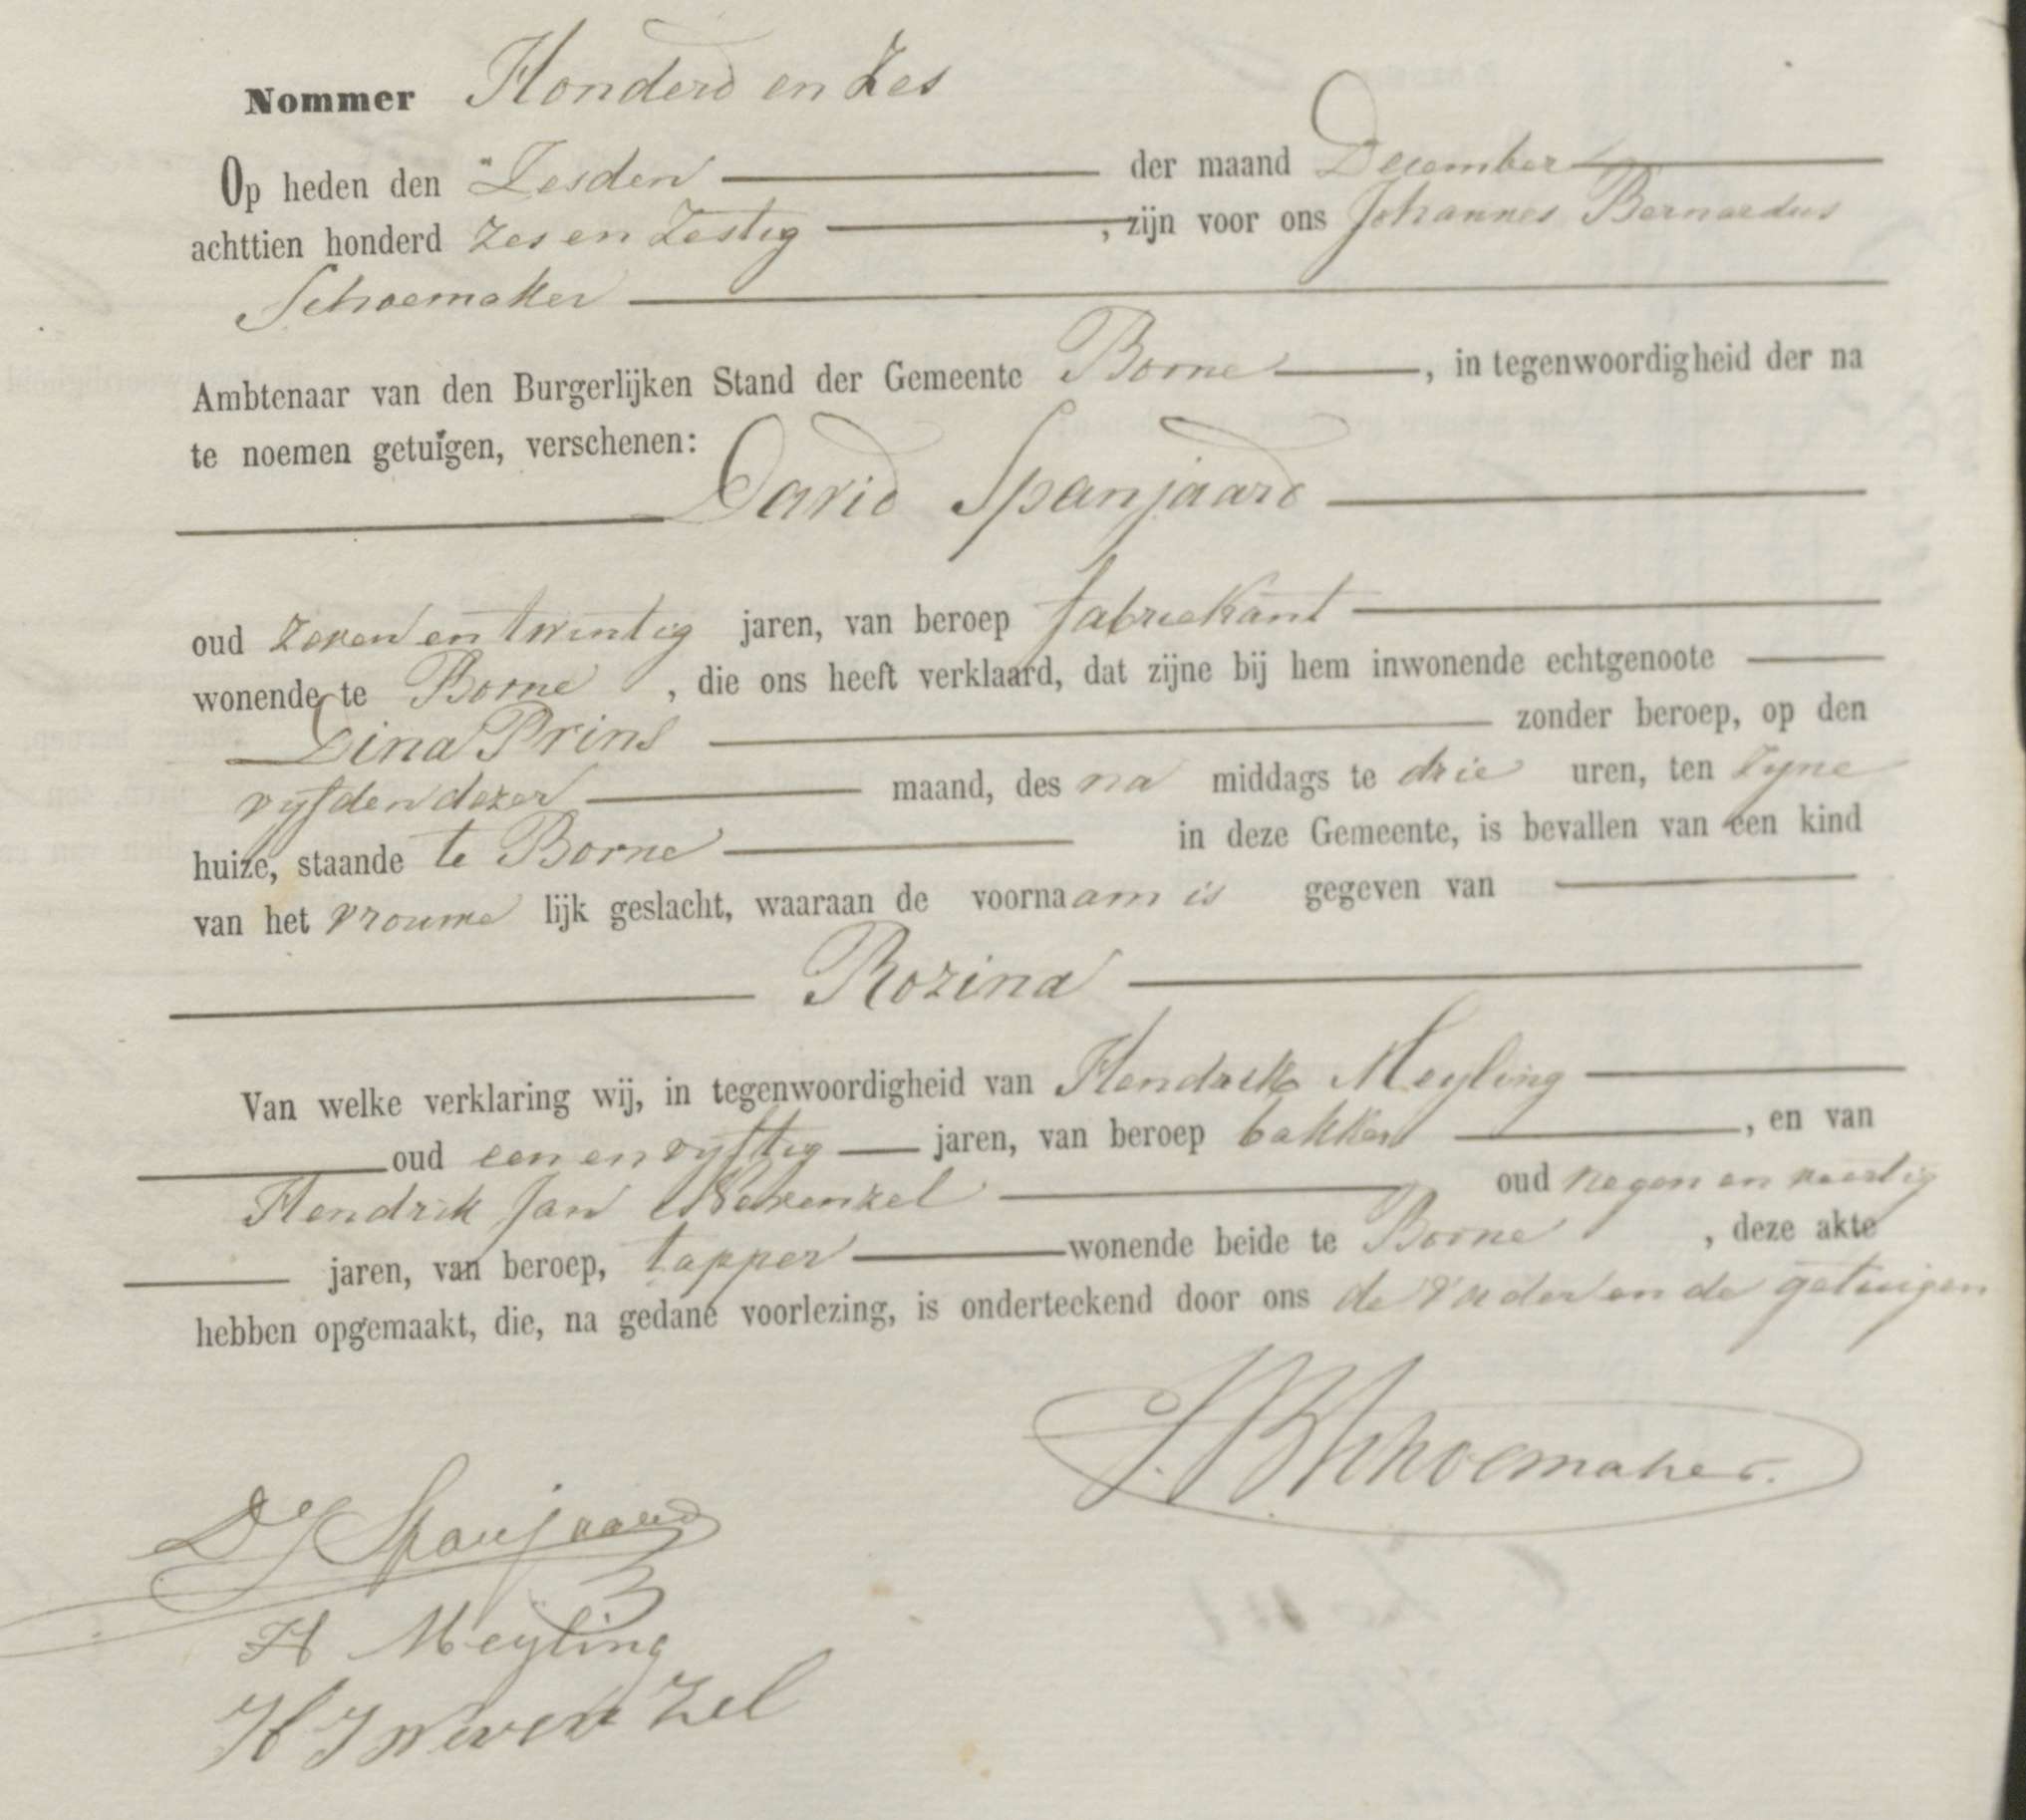 Nommer Honderd en Zes
Op heden den Zesden der maand December
achttien honderd Zes en Zestig, zijn voor ons Johannes Bernardus
Schoemaker
Ambtenaar van den Burgerlijken Stand der Gemeente Borne, in tegenwoordigheid der na
te noemen getuigen, verschenen:
David Spanjaard
oud zeven en twintig jaren, van beroep fabriekant
wonende te Borne, die ons heeft verklaard, dat zijne bij hem inwonende echtgenoote
Dina Prins zonder beroep, op den
vyfden dezer maand, des na middags te drie uren, ten zyne
huize, staande te Borne in deze Gemeente, is bevallen van een kind
van het vrouwe lijk geslacht, waaraan de voornaam is gegeven van
Rozina
Van welke verklaring wij, in tegenwoordigheid van Hendrik Meyling
oud een en vyftig jaren, van beroep bakker, en van
Hendrik Jan Nevenzel oud negen en veertig
jaren, van beroep, tapper wonende beide te Borne, deze akte
hebben opgemaakt, die, na gedane voorlezing, is onderteekend door ons de vader en de getuigen
JBSchoemaker.
DJ Spanjaard
H Meyling
HJ Nevenzel